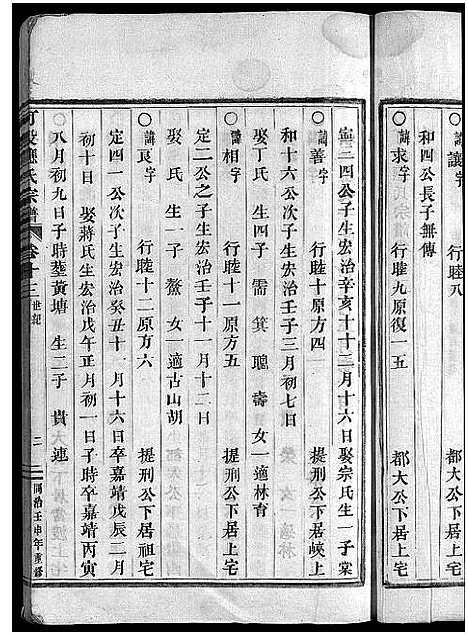 諱讓字 行睦八
和四公長子無傳
○諱求字 行睦九原復一五 都大公下居上宅
寗二四公子生宏治辛亥十十二月十六日娶宗氏生一子棠
○諱善字 行睦十原方四 提刑公下居峽上
和十六公子生宏治壬子三月初七日
娶丁氏 生四子 需 箕 聰 壽 女一適林育
○諱相字 行睦十一原方五 提刑公下居上宅
定二公之子生宏治壬子十一月十二日
娶 氏 生一子 鰲 女一適古山胡
○諱良字 行睦十二原方六 提刑公下居祖宅
定四一公次子生宏治癸丑十一月十六日卒嘉靖戊辰二月
初十日 娶蔣氏生宏治戊午正月初一日子時卒嘉靖丙寅
八月初九日子時葬黃塘 生二子 貴 連
氏宗譜 卷十三 世紀 二 同治壬申年重修